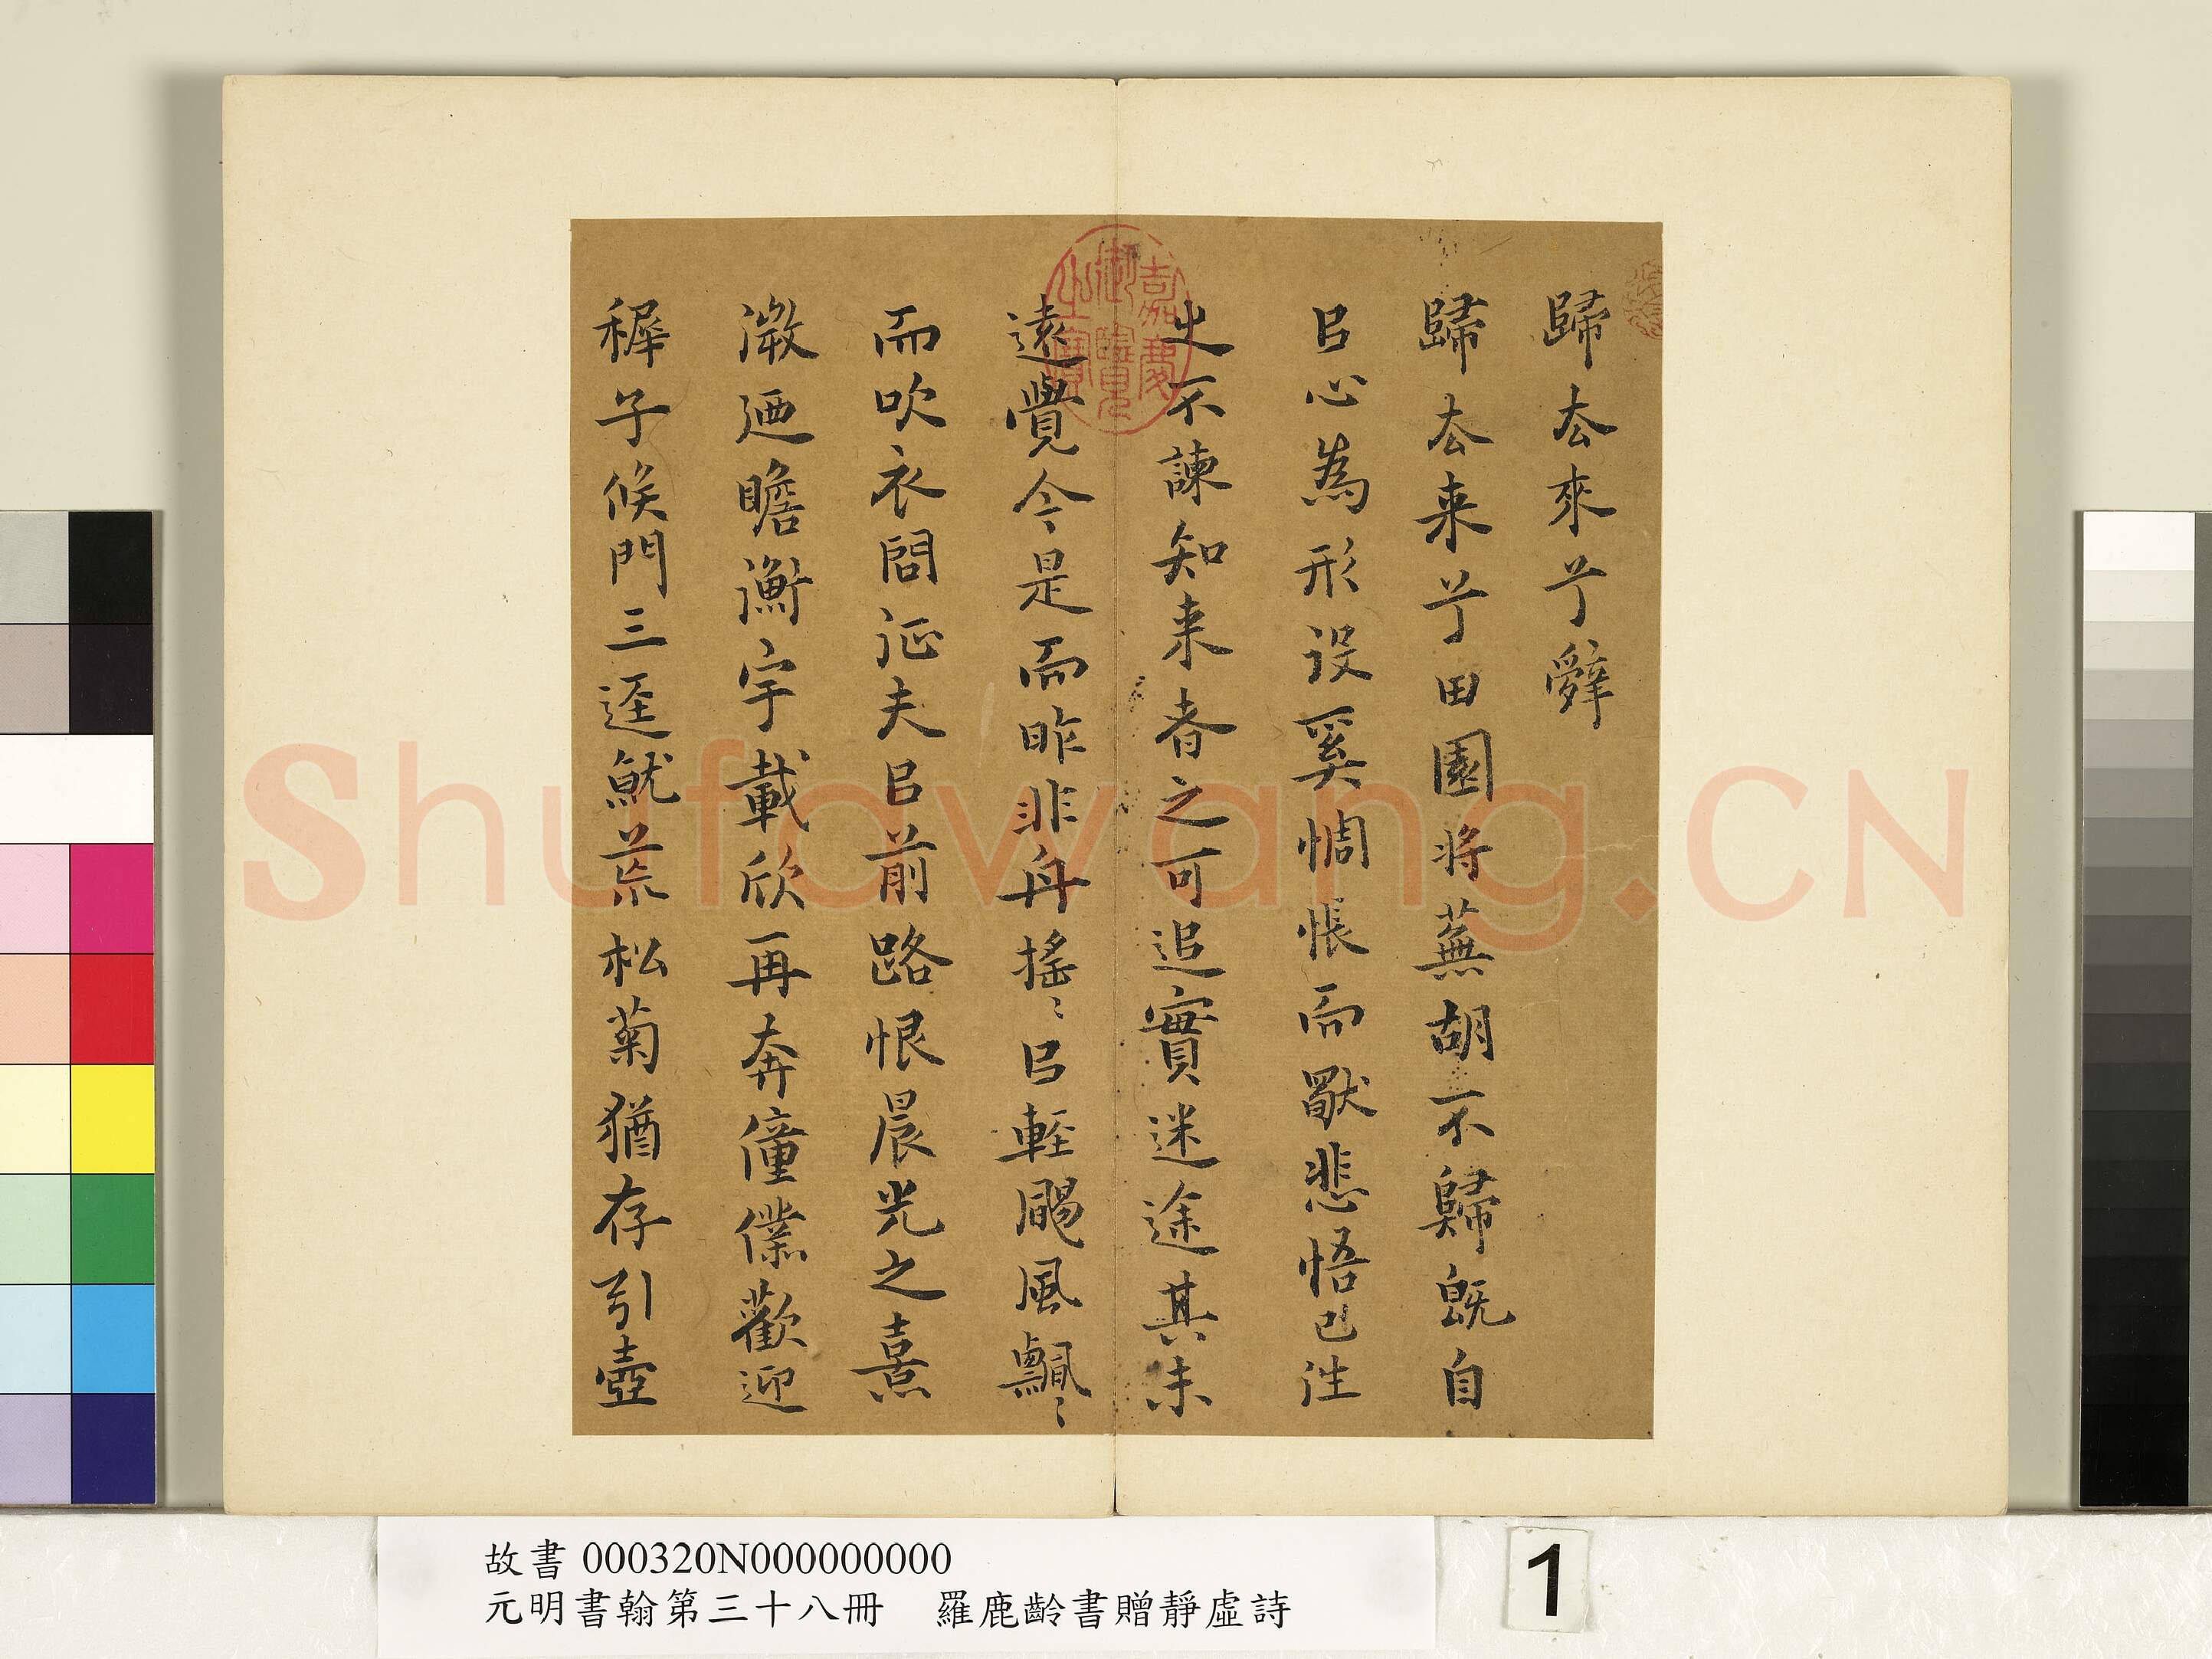 歸去來兮辭
歸去来兮田園将蕪胡不歸既自
㠯心為形役奚惆悵而獸悲悟已往
之不諫知来者之可追實迷途其未
遠覺今是而昨非舟搖〻㠯輕颺風飄〻
而吹衣問征夫㠯前路恨晨光之熹
微迺瞻衡宇載欣再奔僮僕歡迎
穉子候門三逕就荒松菊猶存引壺
嘉慶御覽之寶
Shufawang.CN
故書 000320N000000000
元明書翰第三十八冊 羅鹿齡書贈靜虛詩
1